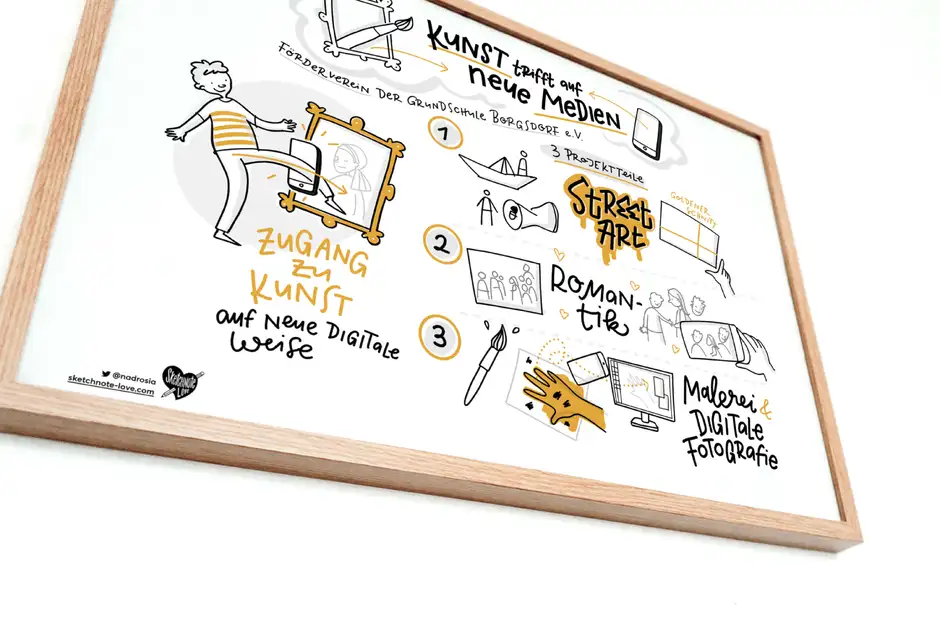 KUNST trifft auf
neue MEDIEN
FÖRDERVEREIN DER GRUNDSCHULE BORGSDORF e.V.
1
3 PROJEKTTEILE
STREET
ART
GOLDENER
SCHNITT
ZUGANG
ZU
KUNST
auf NEUE DIGITALE
Weise
2
ROMAN-
tik
3
Malerei &
DIGITALE
FOTOGRAFIE
@nadrosia
sketchnote-love.com
Sketchnote
Love